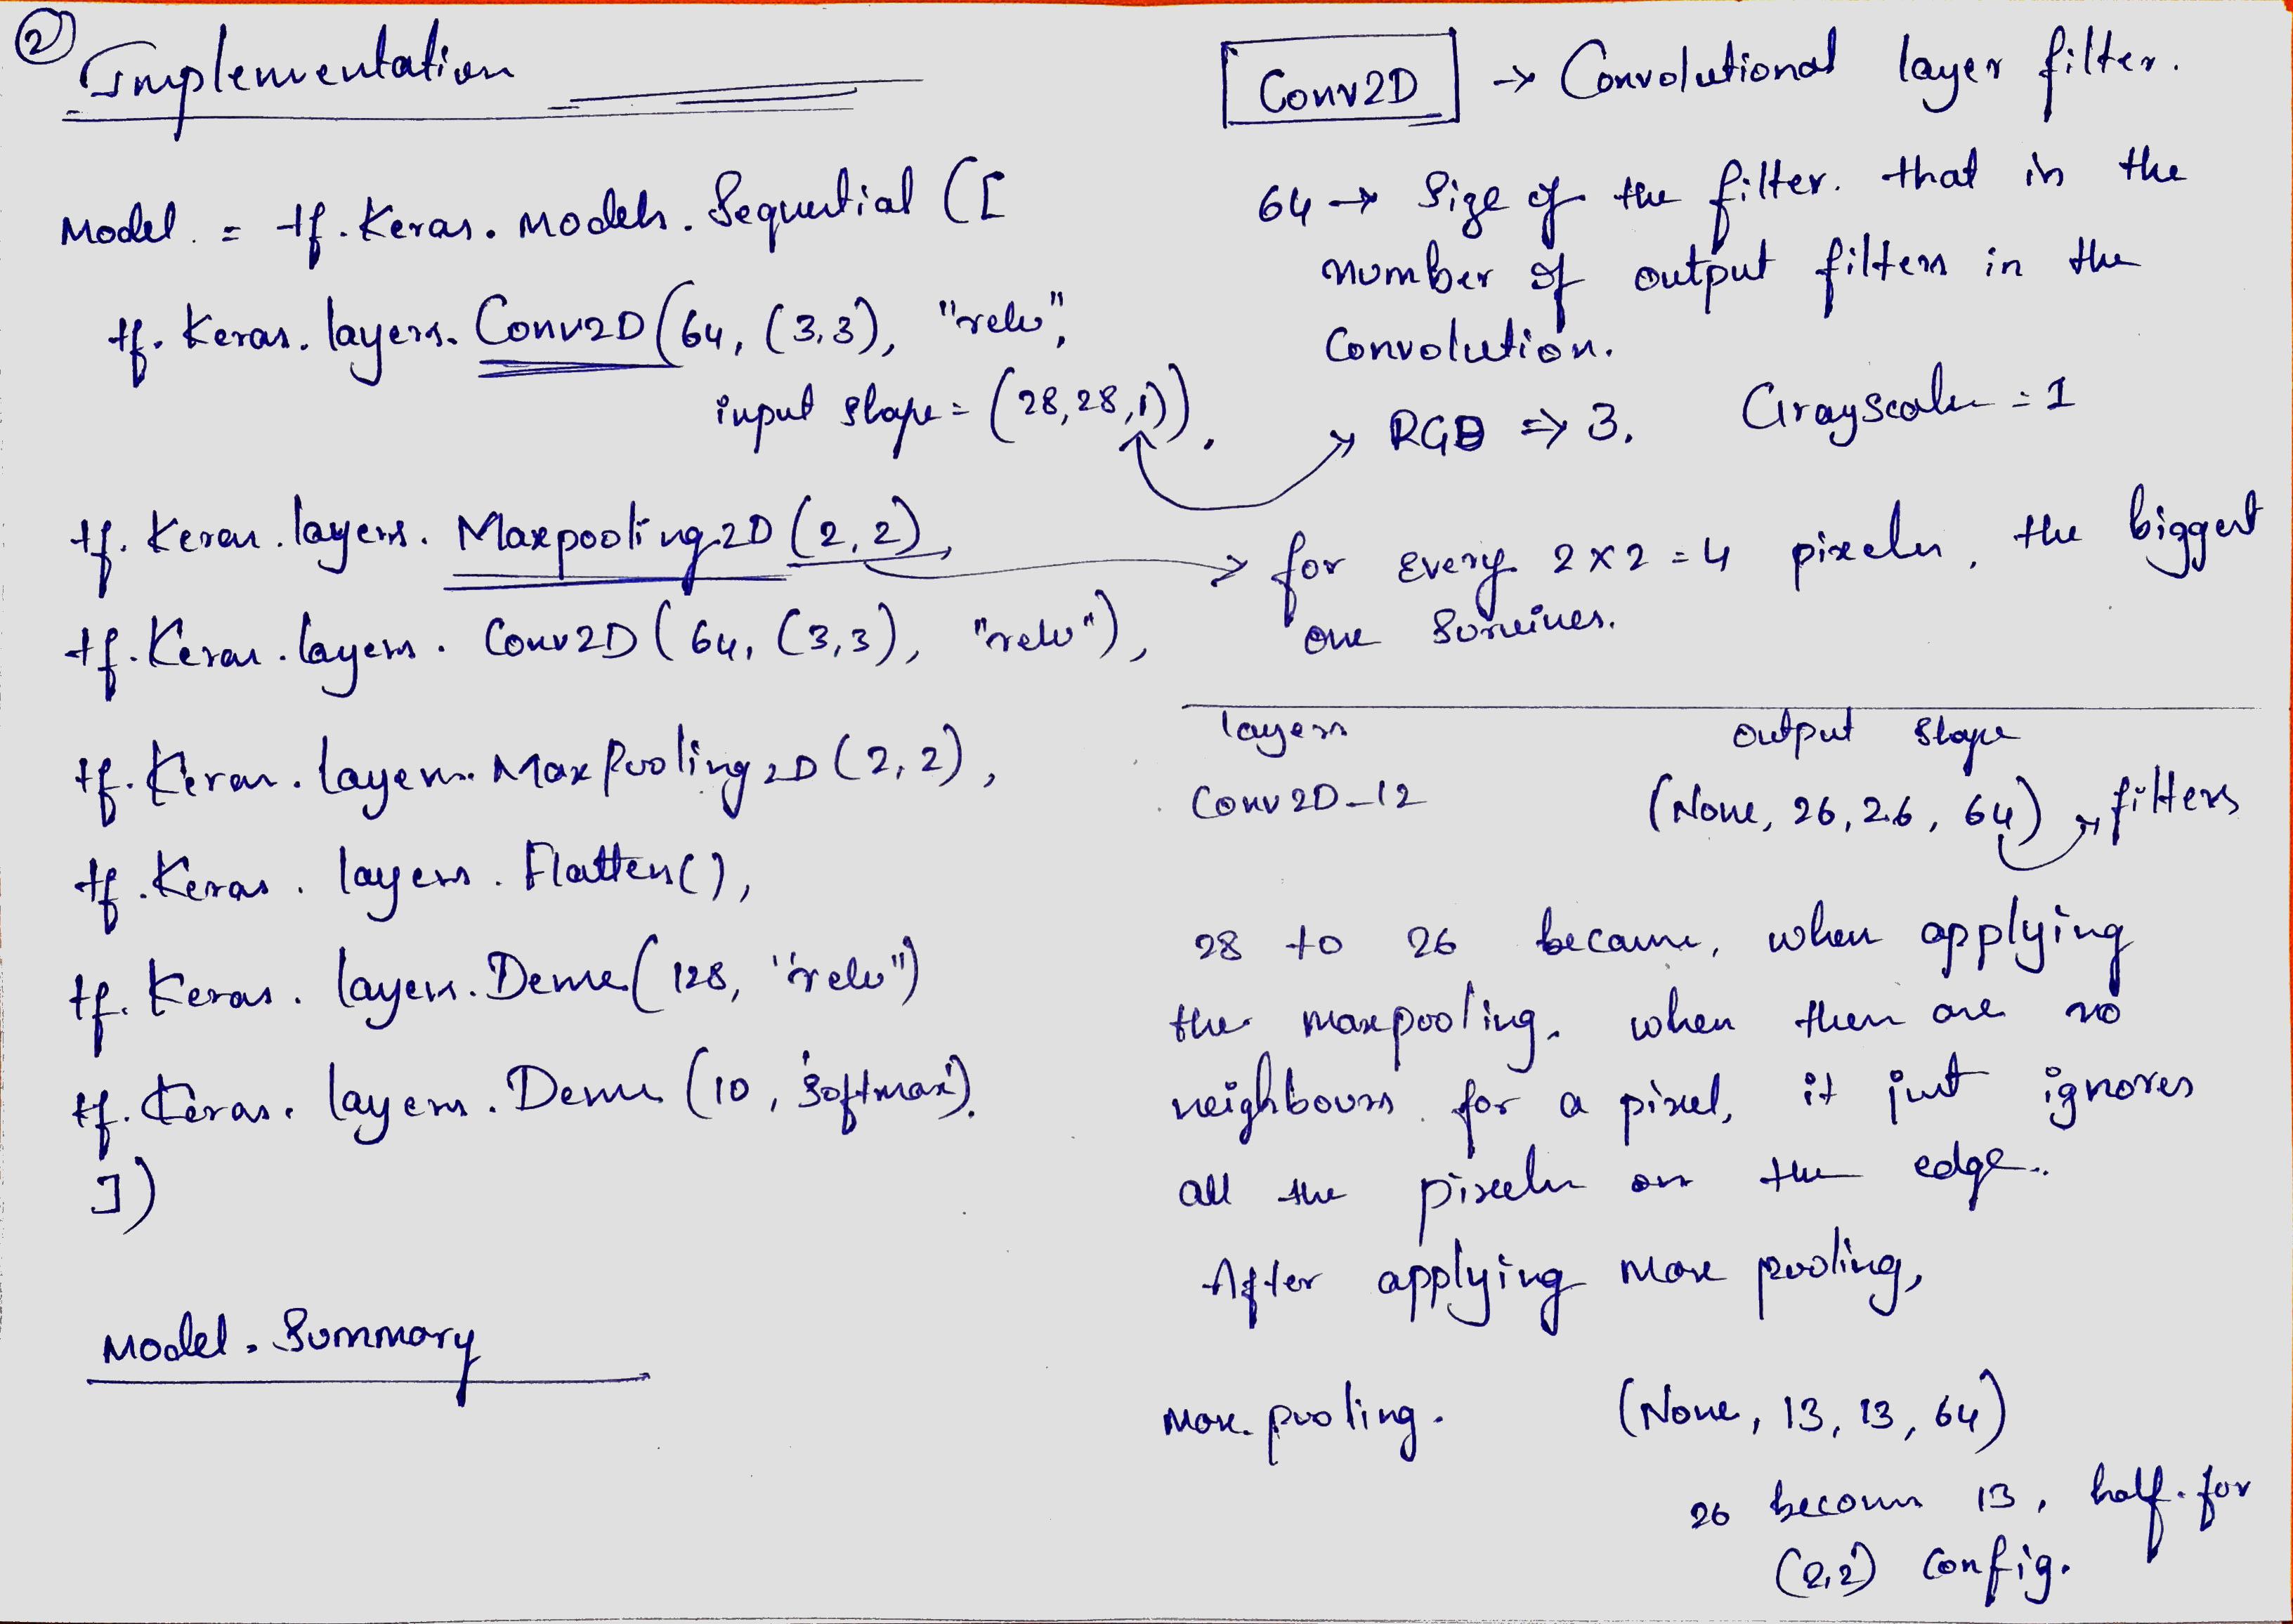 ②
Implementation
Model. = tf.keras.models.Sequential ([
tf.keras.layers.Conv2D(64, (3,3), "relu",
input shape = (28,28,1)),
tf.keras.layers.Maxpooling2D(2,2),
tf.keras.layers.Conv2D(64, (3,3), "relu"),
tf.keras.layers.MaxPooling2D(2,2),
tf.keras.layers.Flatten(),
tf.keras.layers.Dense(128, "relu")
tf.keras.layers.Dense(10, 'softmax').
])
Model.Summary
Conv2D → Convolutional layer filter.
64 → Size of the filter. that is the
number of output filters in the
Convolution.
RGB ⇒ 3. Grayscale = 1
for every 2 x 2 = 4 pixels, the biggest
one survives.
layers output shape
Conv2D_12 (None, 26, 26, 64) → filters
28 to 26 because, when applying
the maxpooling. when there are no
neighbours for a pixel, it just ignores
all the pixels on the edge..
After applying Max pooling,
Max. pooling. (None, 13, 13, 64)
26 becomes 13, half. for
(2,2) Config.